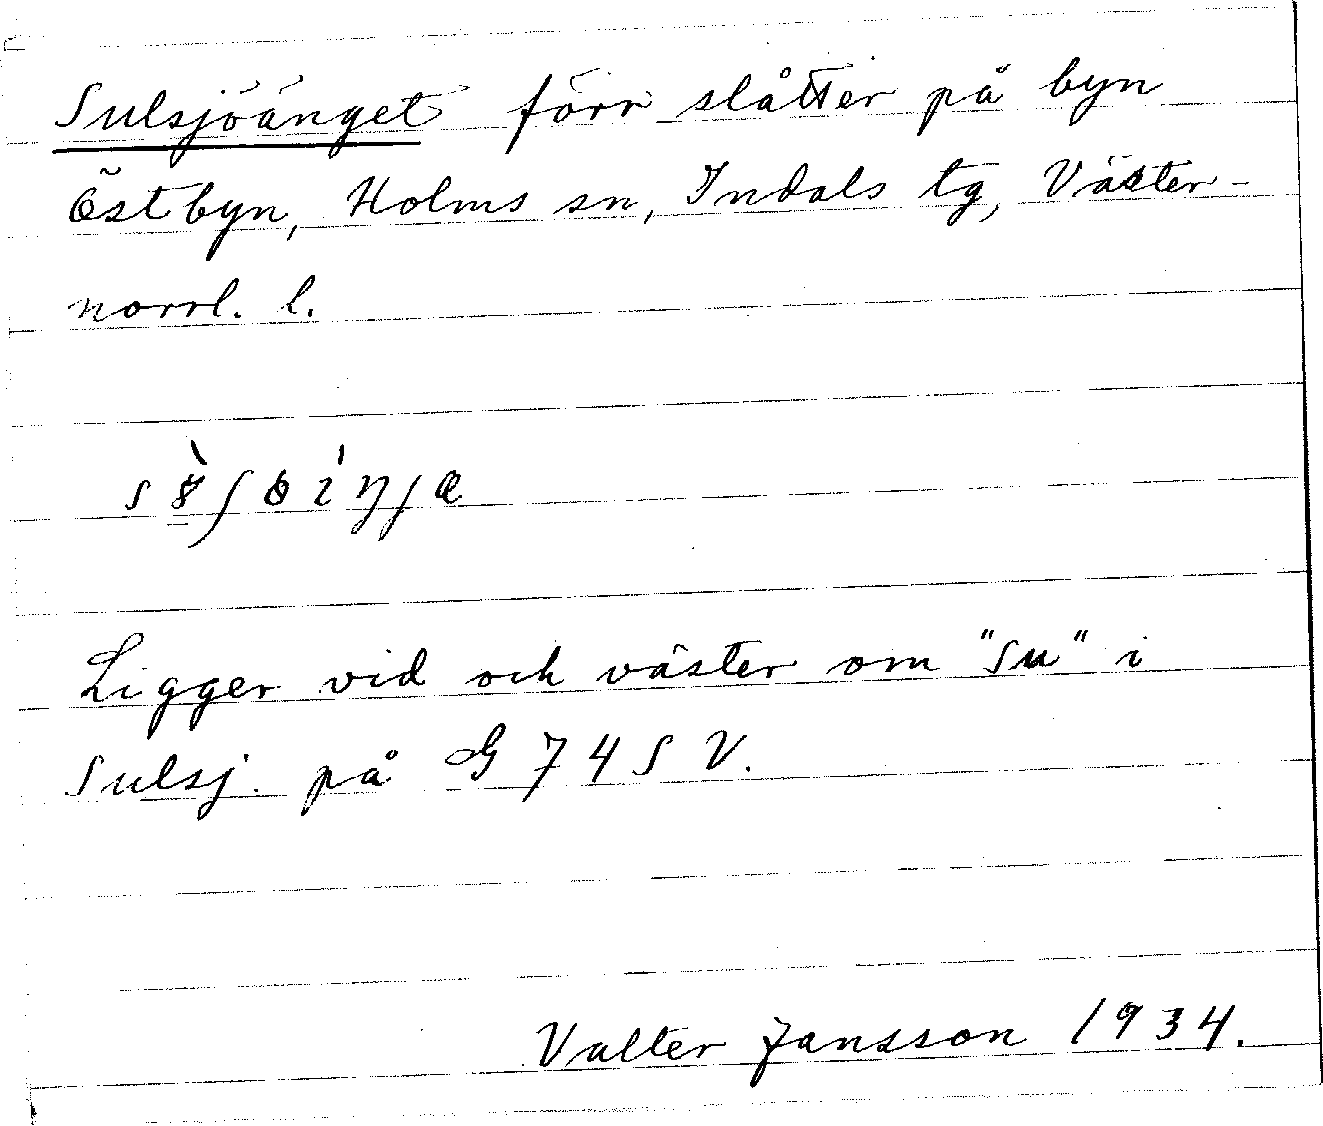 Sulsjöänget förr slåtter på byn
Östbyn, Holms sn, Indals tg, Väster-
norrl. l.
Ligger vid och väster om "Su" i
Sulsj. på G 74 S V.
Valter Jansson 1934.